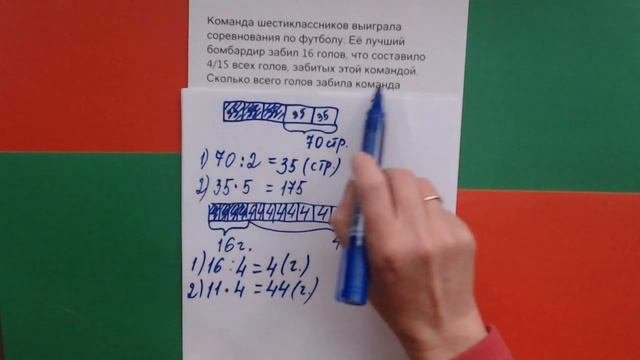 Команда шестиклассников выиграла
соревнования по футболу. Её лучший
бомбардир забил 16 голов, что составило
4/15 всех голов, забитых этой командой.
Сколько всего голов забила команда
35 35
70 стр.
1) 70 : 2 = 35 (стр.)
2) 35 · 5 = 175
4 4 4 4 4 4 4 4 4 4
16 г. 4
1) 16 : 4 = 4 (г.)
2) 11 · 4 = 44 (г.)